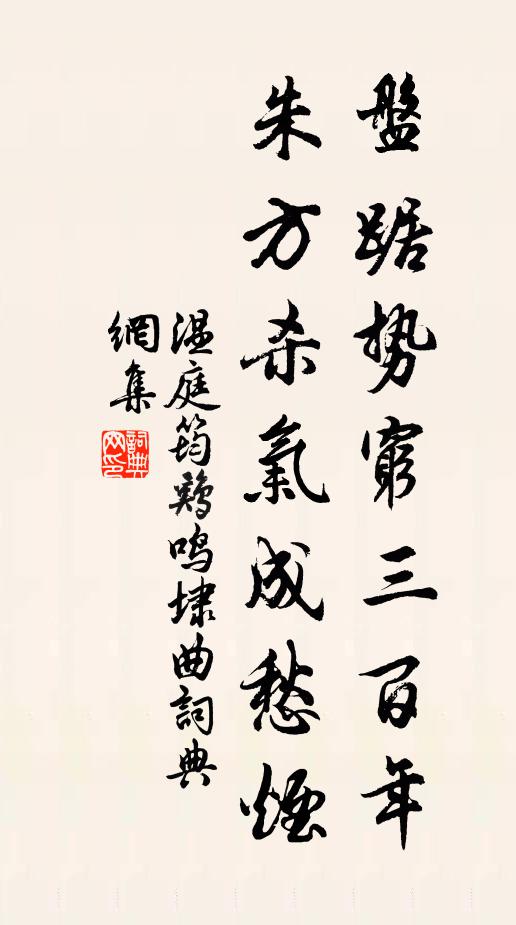 盤踞勢窮三百年
朱方杀氣成愁煙
温庭筠鷄鳴埭曲詞典
網集
詞典
网印